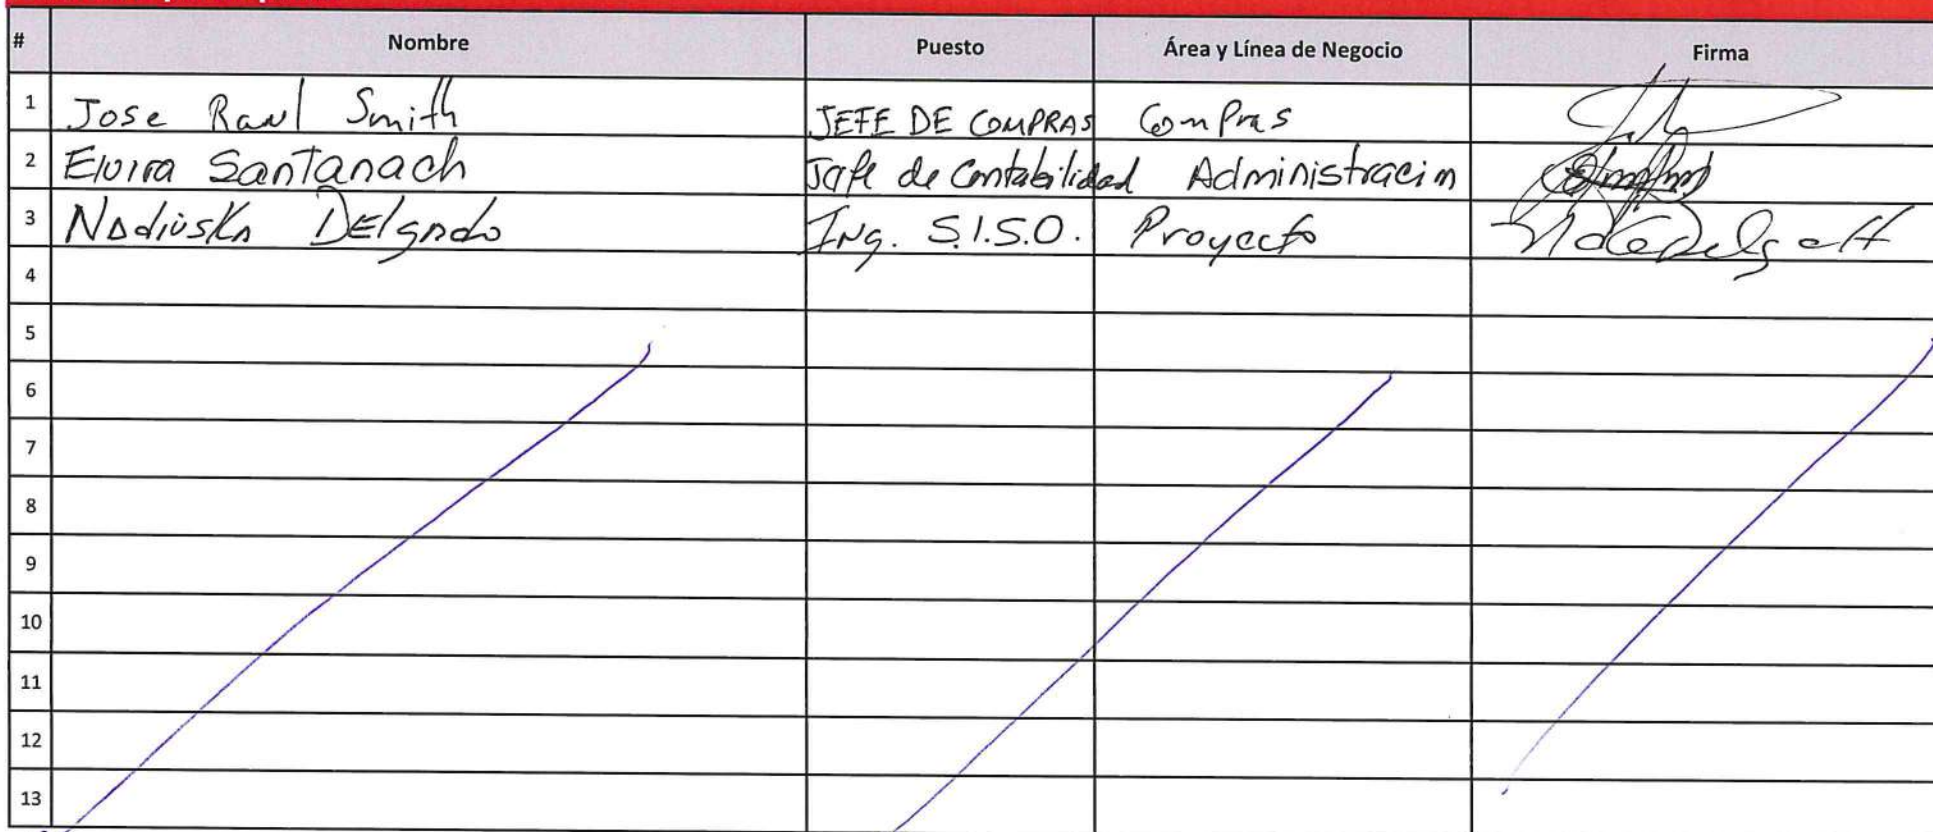 # Nombre Puesto Área y Línea de Negocio Firma
1 Jose Raul Smith JEFE DE COMPRAS Compras
2 Elvira Santanach Jefe de Contabilidad Administración
3 Nadiuska DElgado Ing. S.I.S.O. Proyecto
4
5
6
7
8
9
10
11
12
13